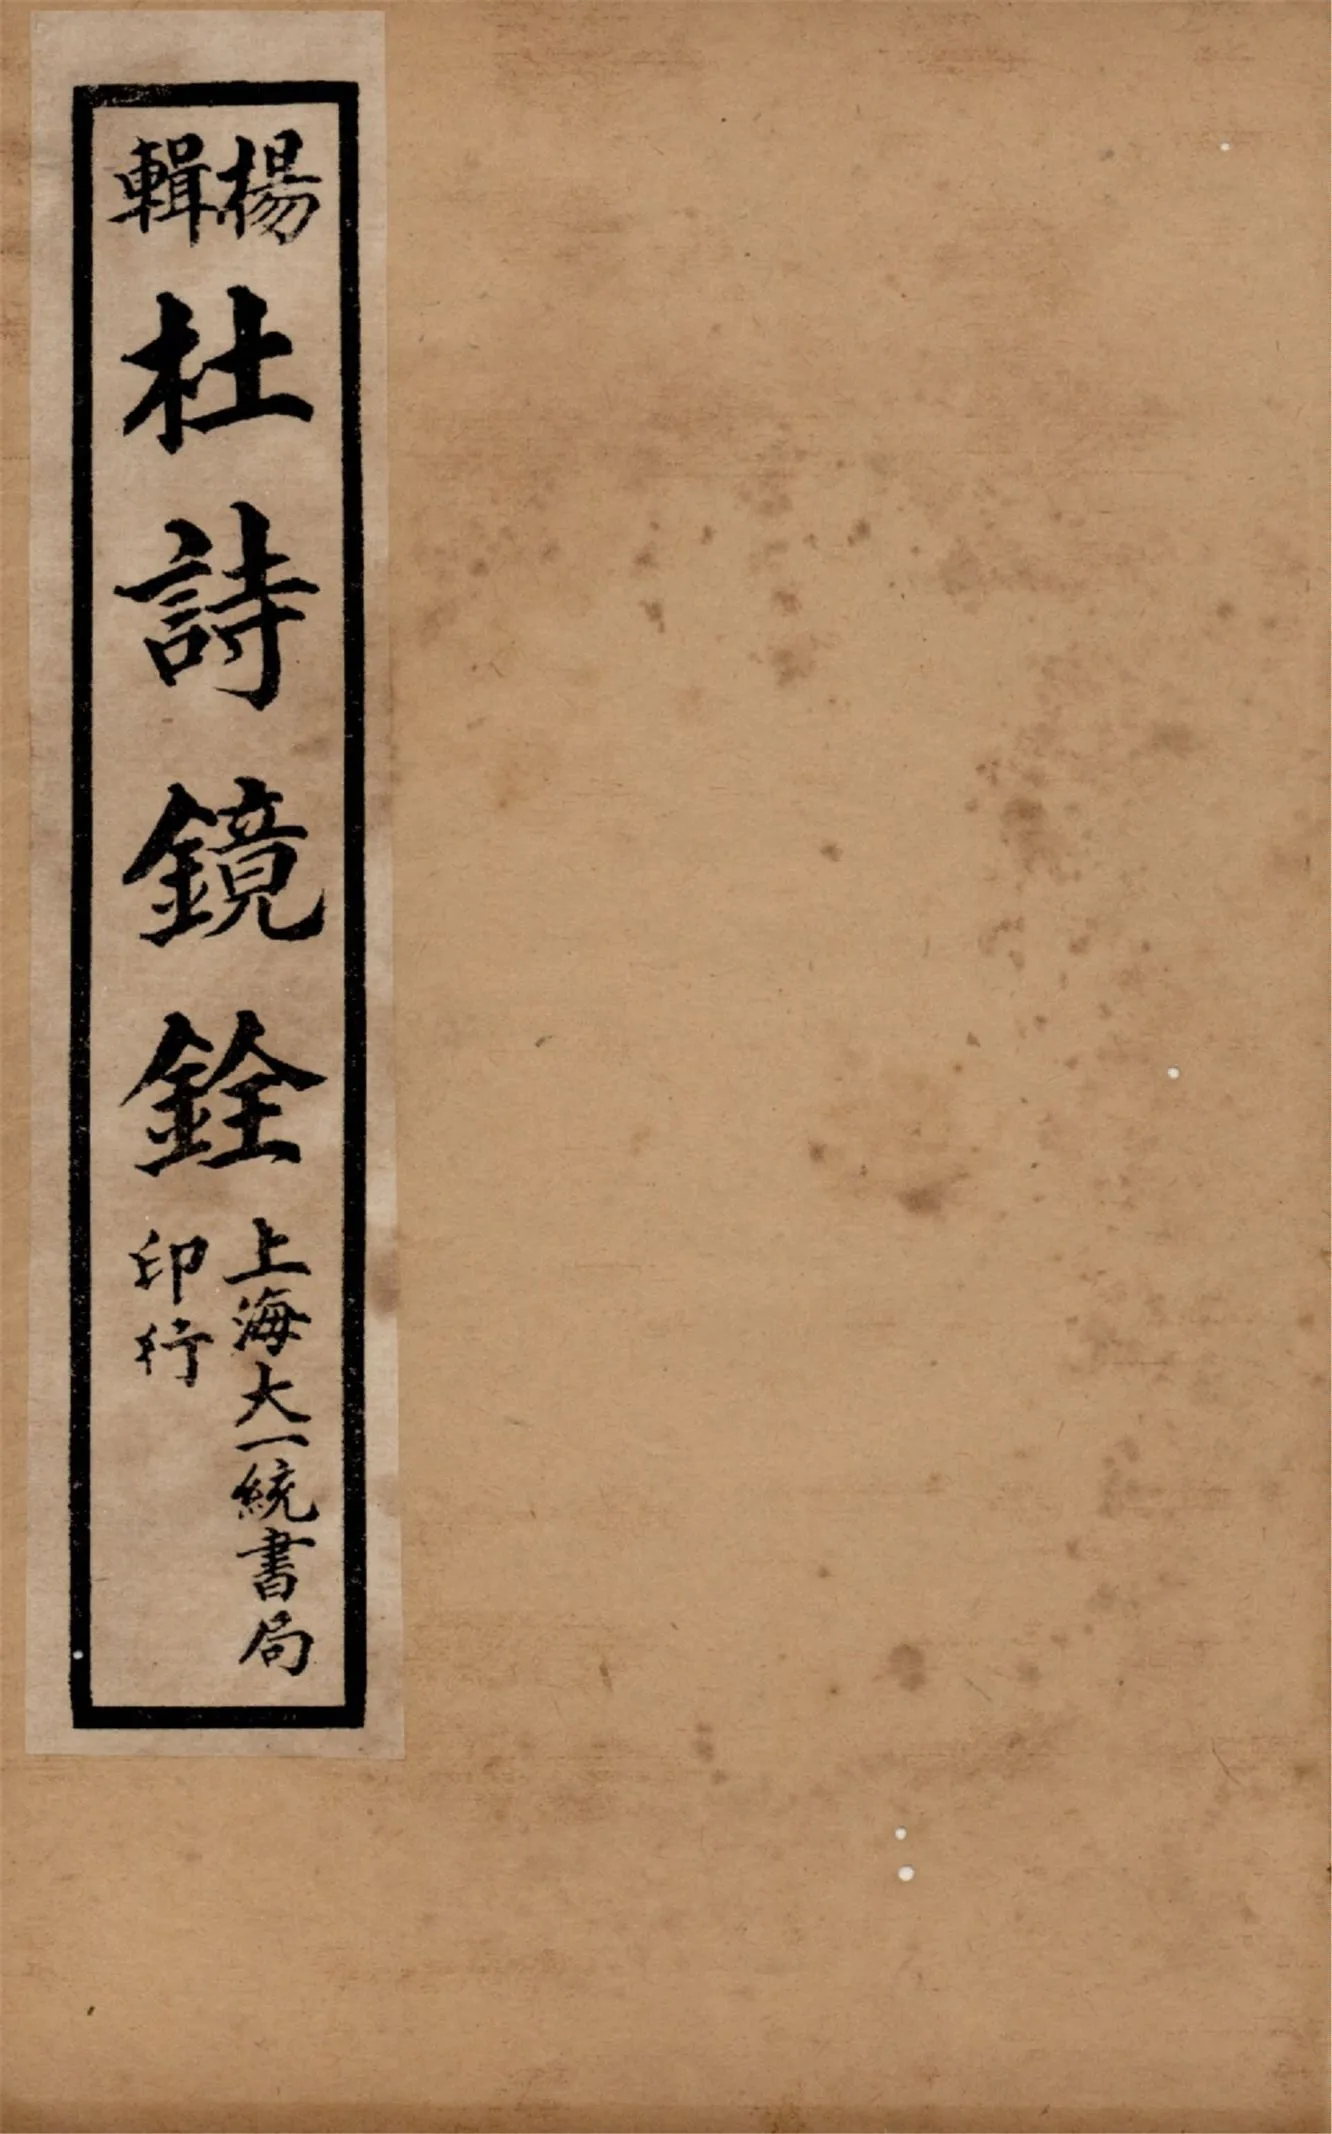 楊
輯
杜詩鏡銓
上海大一統書局
印行